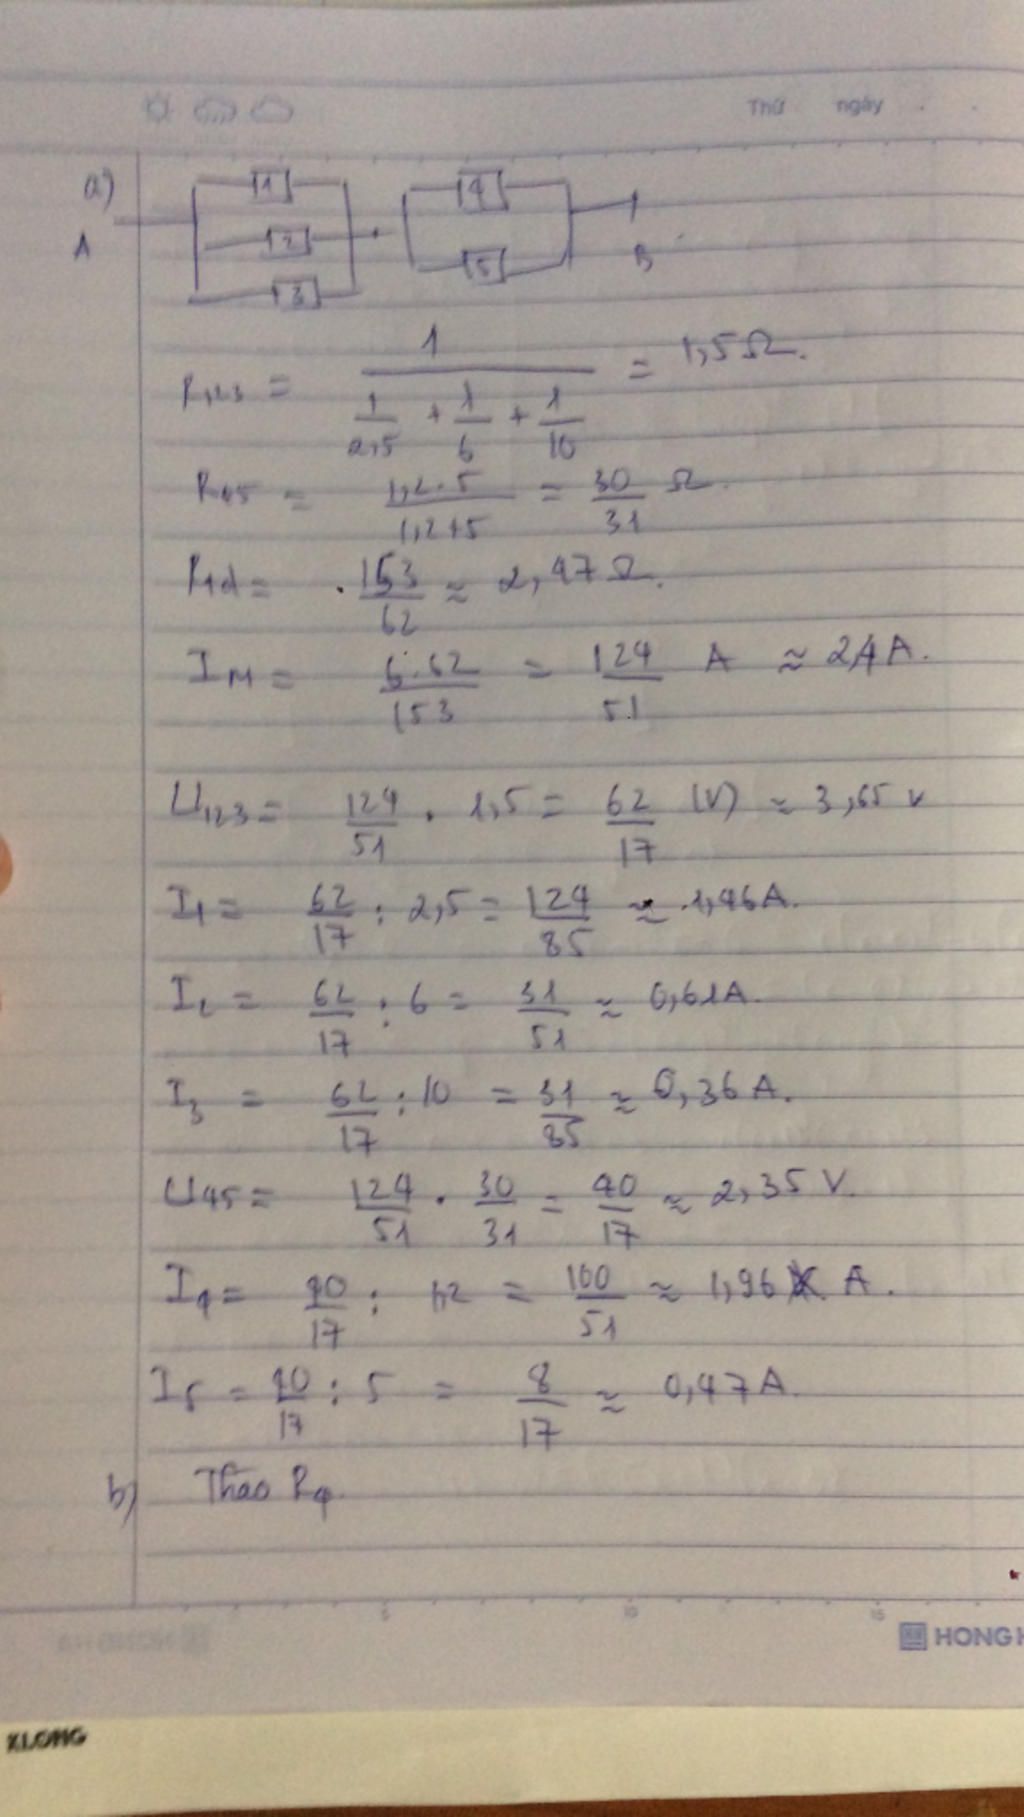 Thứ ngày
a)
1
4
2
A
5
B
3
R₁₂₃ = 1 / (1/2,5 + 1/6 + 1/10) = 1,5 Ω.
R₄₅ = 1,2.5 / 1,2+5 = 30/31 Ω.
Rtđ = 153/62 ≈ 2,47 Ω.
IM = 6.62/153 = 124/51 A ≈ 2,4 A.
U₁₂₃ = 124/51 . 1,5 = 62/17 (V) ≈ 3,65 V
I₁ = 62/17 : 2,5 = 124/85 ≈ 1,46A.
I₂ = 62/17 : 6 = 31/51 ≈ 0,61A.
I₃ = 62/17 : 10 = 31/85 ≈ 0,36 A.
U₄₅ = 124/51 . 30/31 = 40/17 ≈ 2,35 V.
I₄ = 40/17 : 1,2 = 100/51 ≈ 1,96 A.
I₅ = 40/17 : 5 = 8/17 ≈ 0,47 A.
b) Tháo R₄.
5 10 15
HONG H
KLONG